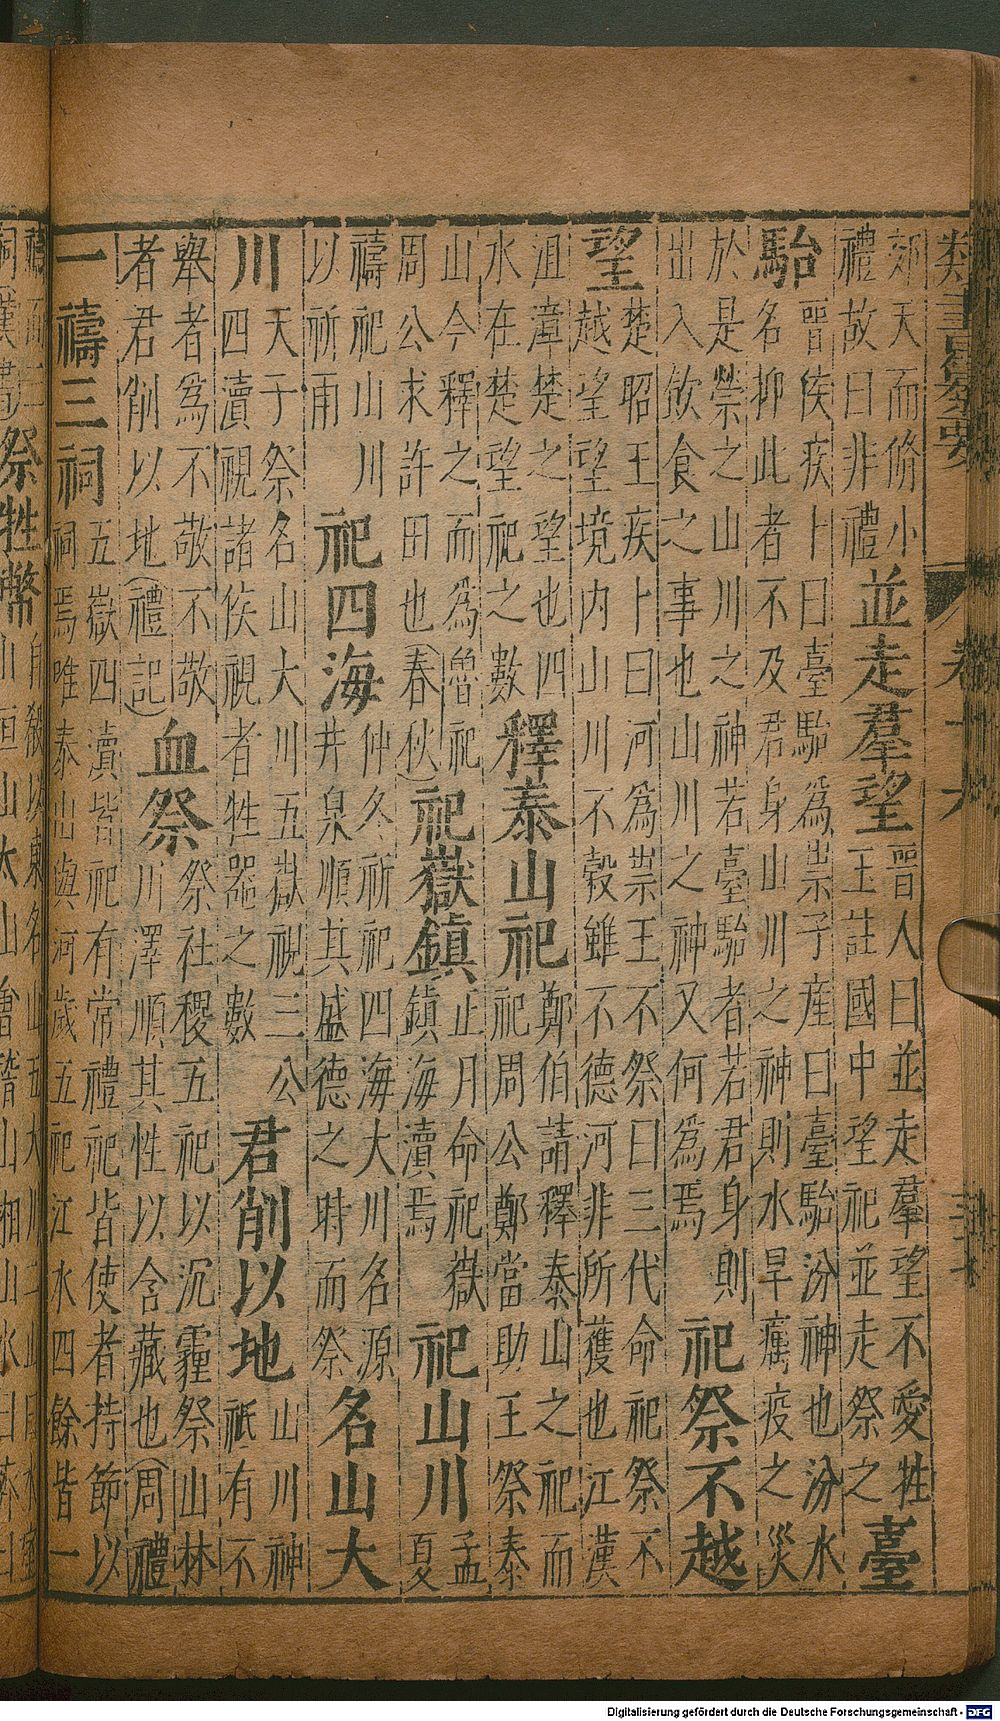 類書纂要 卷十九
郊天而脩小
禮故曰非禮
並走羣望
晉人曰並走羣望不愛牲
王註國中望祀並走祭之
臺
駘
晉侯疾卜曰臺駘為祟子産曰臺駘汾神也汾水
名抑此者不及君身山川之神則水旱癘疫之災
於是禜之山川之神若臺駘者若君身則
出入飲食之事也山川之神又何為焉
祀祭不越
望
楚昭王疾卜曰河為祟王不祭曰三代命祀祭不
越望望境内山川不穀雖不德河非所獲也江漢
沮漳楚之望也四
水在楚望祀之數
釋泰山祀
鄭伯請釋泰山之祀而
祀周公鄭當助王祭泰
山今釋之而為魯祀
周公求許田也(春秋)
祀嶽鎮
正月命祀嶽
鎮海瀆焉
祀山川
孟
夏
禱祀山川
以祈雨
祀四海
仲冬祈祀四海大川名源
井泉順其盛德之時而祭
名山大
川
天子祭名山大川五嶽視三公
四瀆視諸侯視者牲器之數
君削以地
山川神
祇有不
舉者為不敬不敬
者君削以地(禮記)
血祭
祭社稷五祀以沉霾祭山林
川澤順其性以含藏也(周禮)
一禱三祠
五嶽四瀆皆祀有常禮祀皆使者持節以
祠焉唯泰山與河歲五祀江水四餘皆一
禱而三
祠(漢書)
祭牲幣
自殽以東名山五大川二
山恒山太山會稽山湘山水曰濟曰
Digitalisierung gefördert durch die Deutsche Forschungsgemeinschaft - DFG